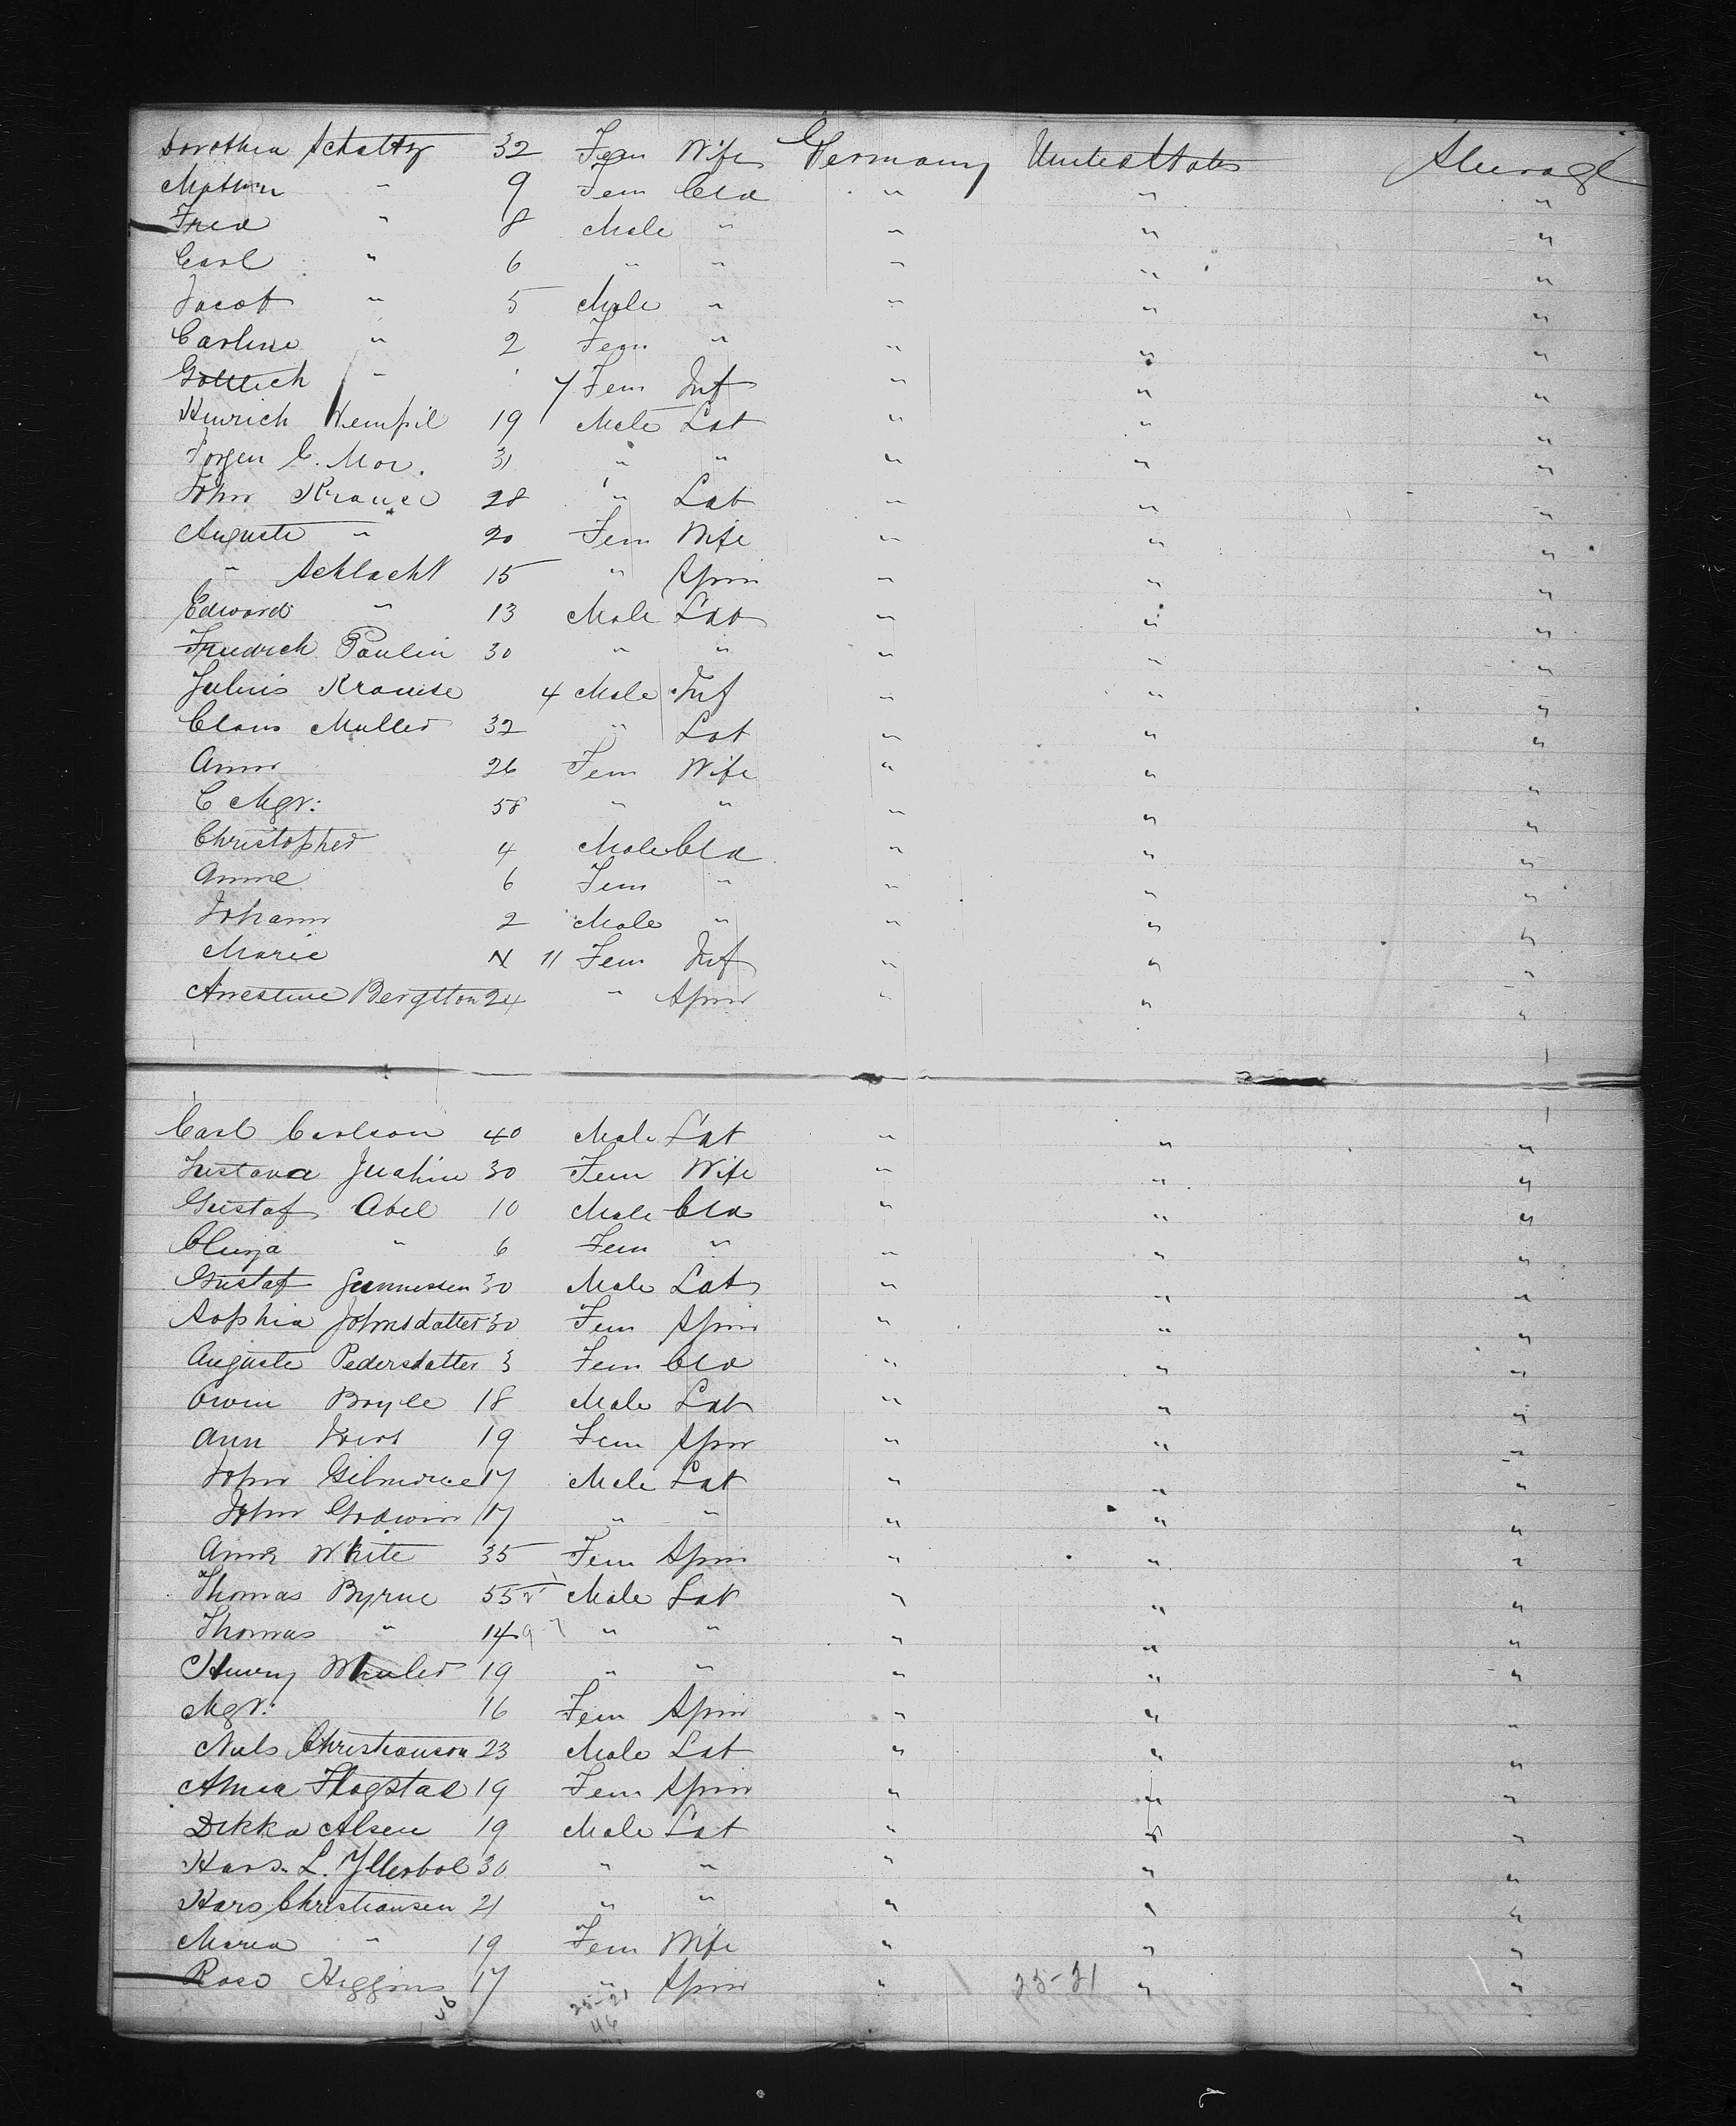 Dorothea Schaltz 32 Fem Wife Germany United States Steerage
" 9 Fem Cld " " "
Fred " 8 Male " " " "
Carl " 6 " " " " "
Jacob " 5 Male " " " "
Carline " 2 Fem " " " "
Gottlieb " 7 Fem Inf " " "
Hinrich Hempil 19 Male Lab " " "
Jorgen C. Mor. 31 " " " " "
John Krause 28 " Lab " " "
Auguste " 20 Fem Wife " " "
" Schlacht 15 " Spin " " "
Edward " 13 Male Lab " " "
Friedrich Paulin 30 " " " " "
Julius Krause 4 Male Inf " " "
Claus Muller 32 " Lab " " "
Anna 26 Fem Wife " " "
C Mgr: 58 " " " " "
Christopher 4 Male Cld " " "
Anne 6 Fem " " " "
Johann 2 Male " " " "
Marie 11 Fem Inf " " "
Bergtton 24 " Spin " " "
Carl Carlson 40 Male Lab " " "
Gustava 30 Fem Wife " " "
Gustaf Abel 10 Male Cld " " "
" 6 Fem " " " "
Gustaf Gunnessen 30 Male Lab " " "
Sophia Johnsdatter 30 Fem Spin " " "
Auguste Pedersdatter 3 Fem Cld " " "
Owen Boyle 18 Male Lab " " "
Ann 19 Fem Spin " " "
John Gilmore 17 Male Lab " " "
John Godwin 17 " " " " "
Anna White 35 Fem Spin " " "
Thomas Byrne 55 Male Lab " " "
Thomas " 14 " " " " "
Henry Wheeler 19 " " " " "
Mgr: 16 Fem Spin " " "
Niels Christianson 23 Male Lab " " "
Flogstad 19 Fem Spin " " "
Dikka Alsen 19 Male Lab " " "
Hans L. 30 " " " " "
Hans Christiansen 21 " " " " "
Maria " 19 Fem Wife " " "
Rose Higgins 17 " Spin " 25-21 " "
46 25-21
46